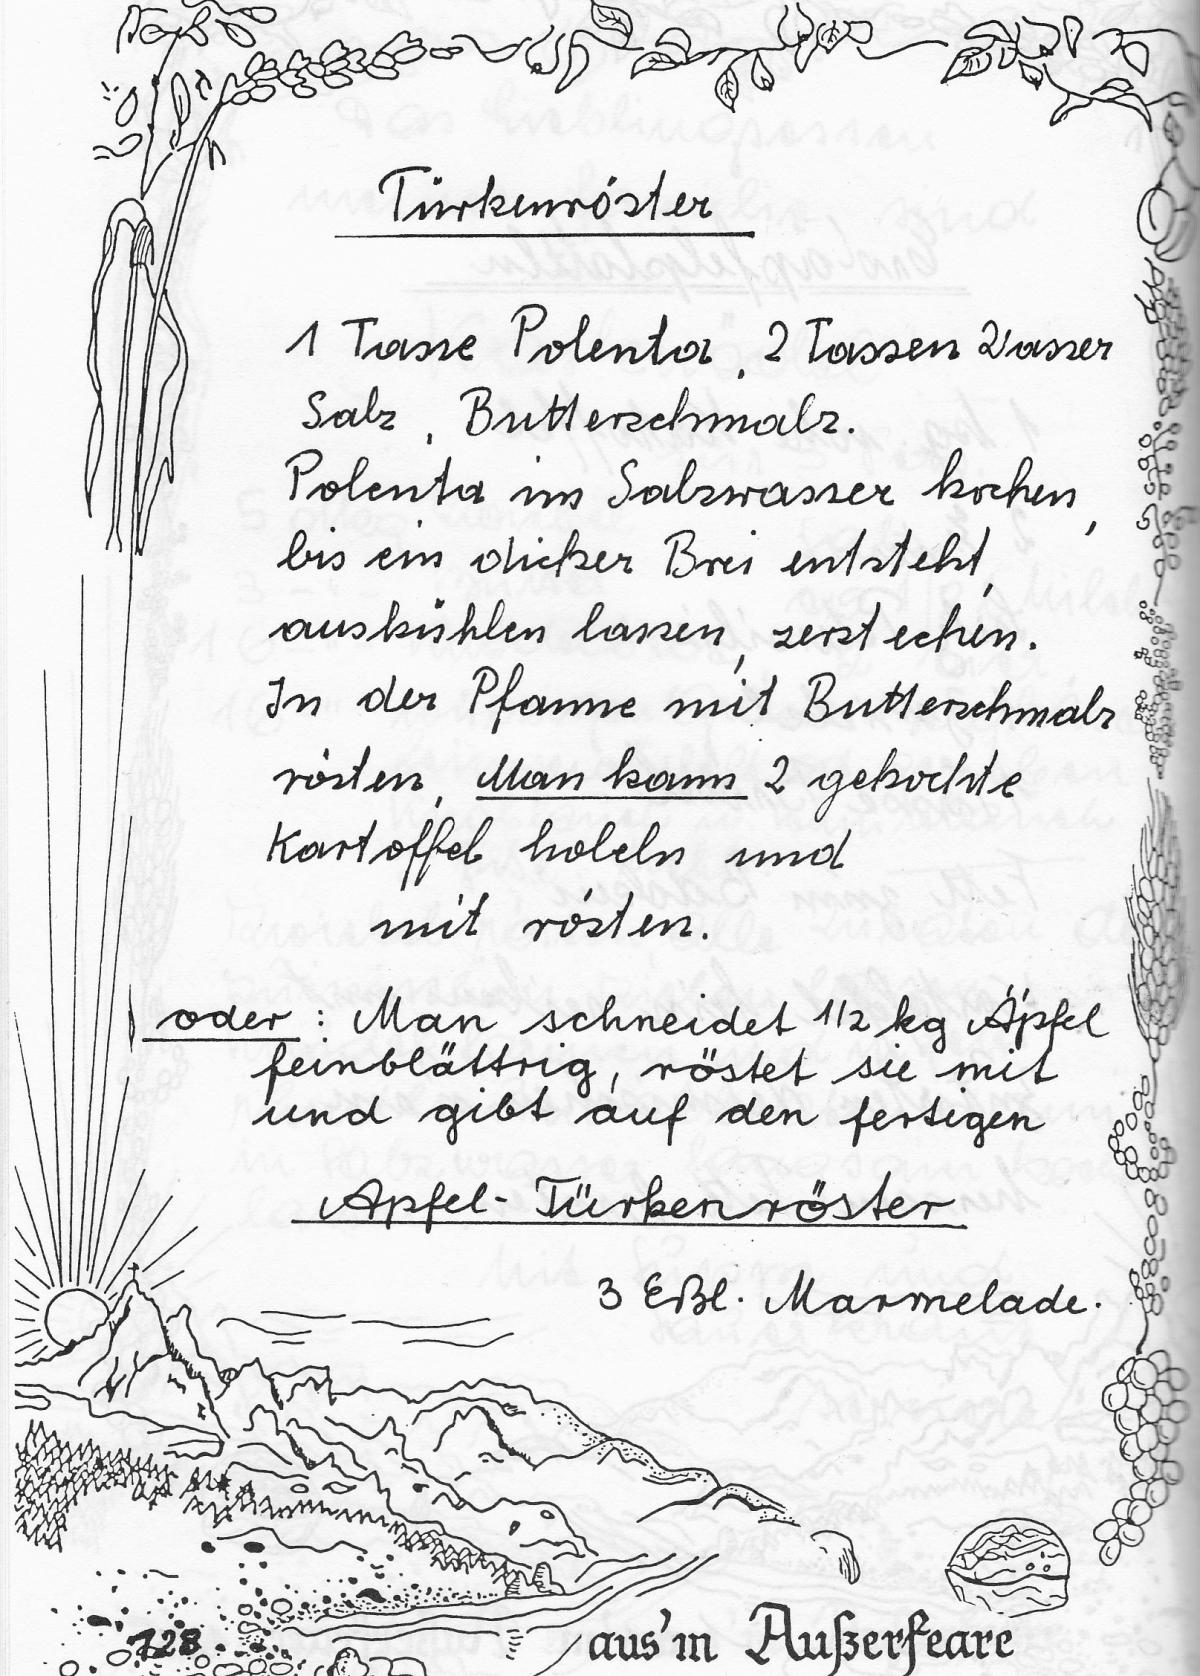 Türkenröster
1 Tasse Polenta, 2 Tassen Wasser
Salz, Butterschmalz.
Polenta im Salzwasser kochen,
bis ein dicker Brei entsteht,
auskühlen lassen, zerstechen.
In der Pfanne mit Butterschmalz
rösten, Man kann 2 gekochte
Kartoffel hobeln und
mit rösten.
oder: Man schneidet 1/2 kg Äpfel
feinblättrig, röstet sie mit
und gibt auf den fertigen
Apfel-Türkenröster
3 Eßl. Marmelade.
128
aus'm Außerfeare